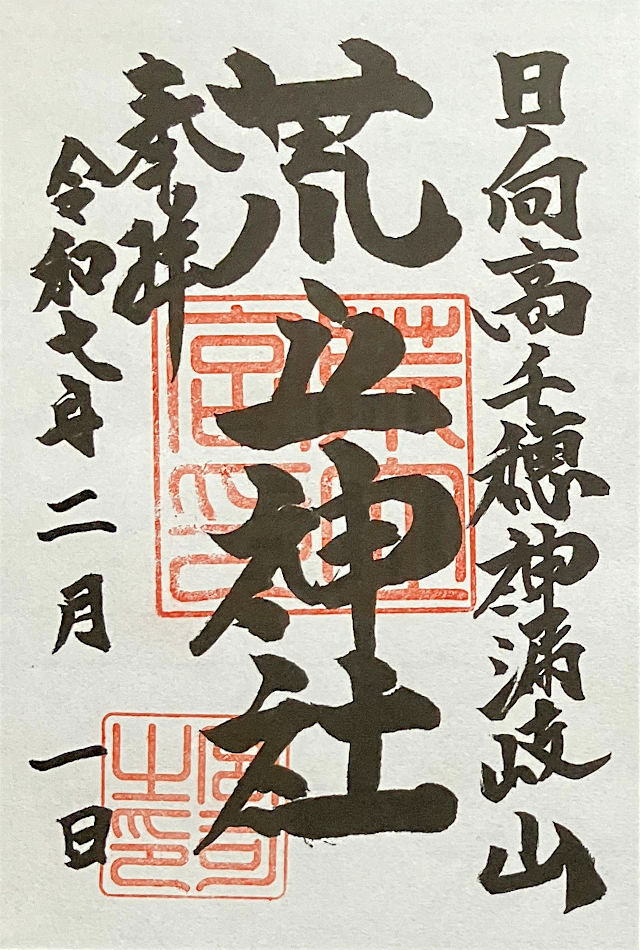 日向高千穂神漏岐山
荒立神社
奉拝
令和七年 二月 一日